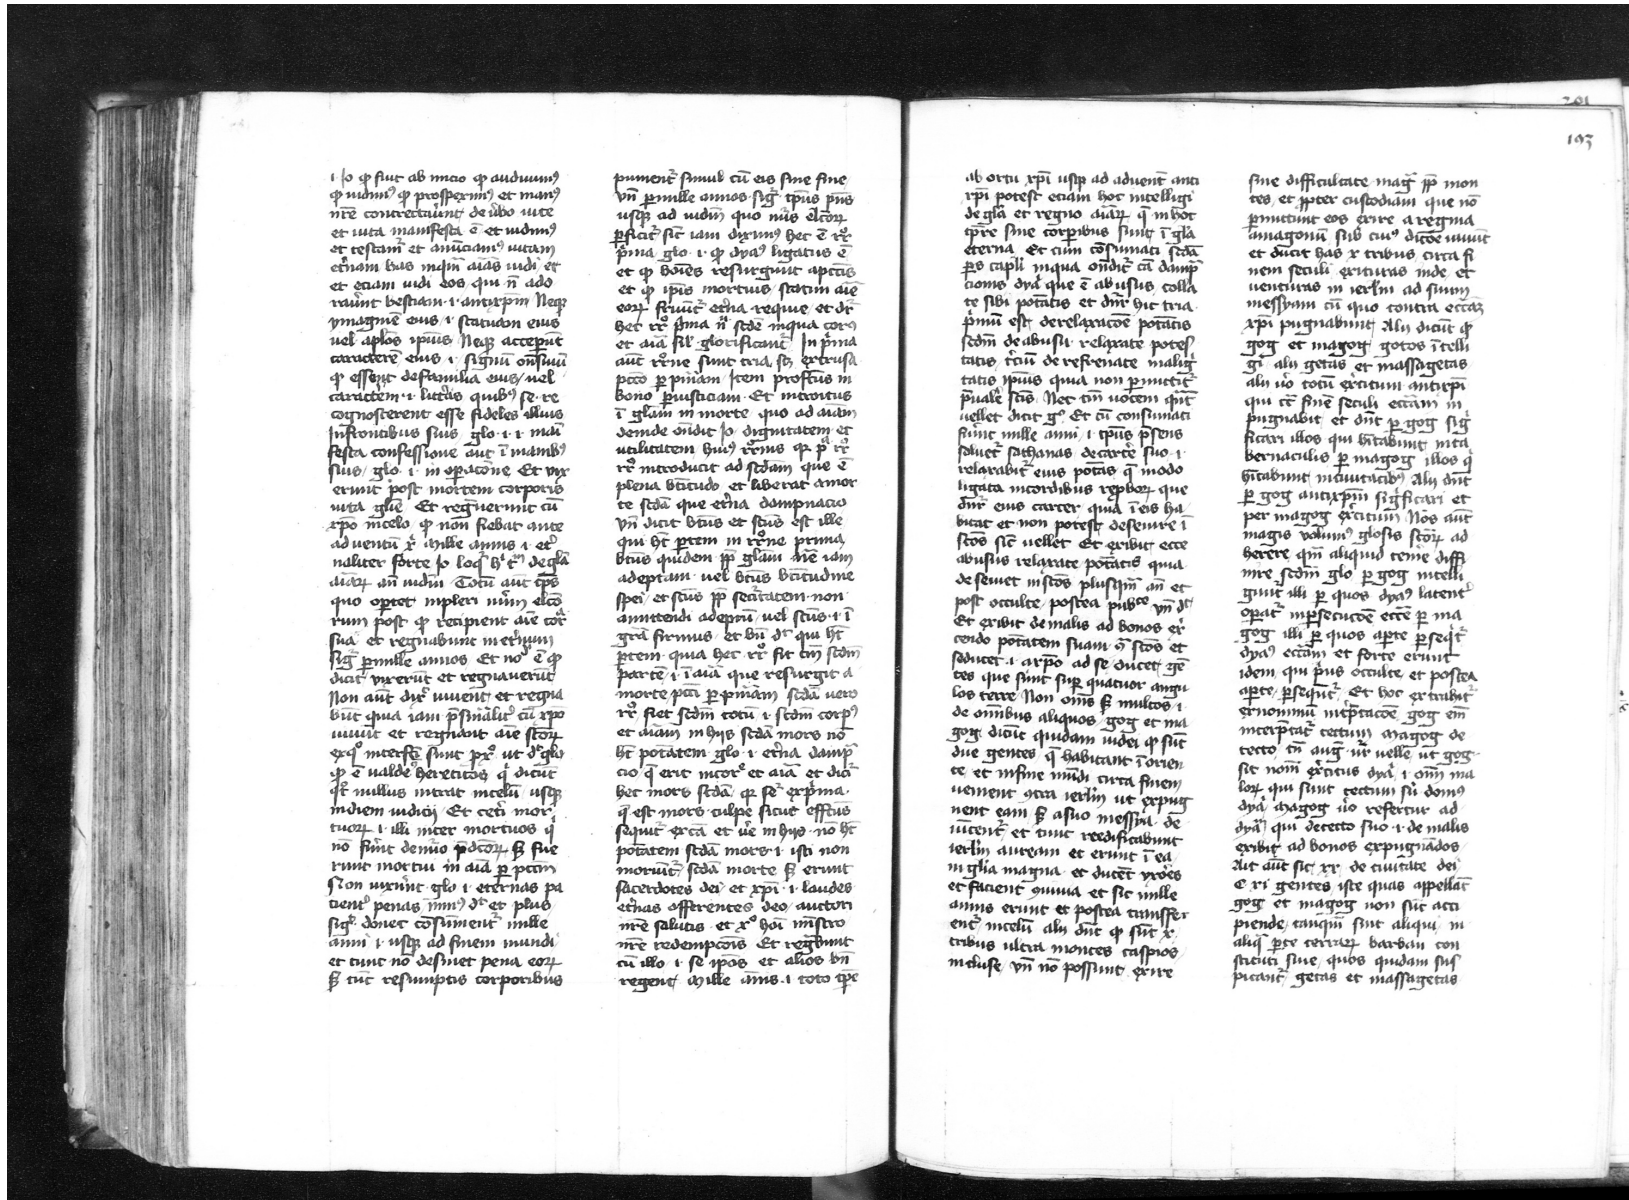 1 Jo ꝙ fuit ab inicio ꝙ audiuimꝰ
ꝙ vidimꝰ ꝙ ꝓsperimꝰ et manꝰ
nr̄e contrectauer̄nt de v̄bo vite
et vita manifesta ē et vidimꝰ
et testam̄ et anūciamꝰ vitam
et̄nam has inqm̄ aīas vidi et
et eciam vidi eos qui nō ado
rauer̄t bestiam · i · antixp̄m Neqꝫ
ymaginē eius · i · statuam eius
vel apl̄os ipius Neqꝫ acceperūt
caracterē eius · i · signum
ꝙ essent de familia eius vel
caractem · i · litt̄as quibꝰ se re
cognoscerent esse fideles illius
In frontibus suis glo · i · i mani
festa confessione aut ī manibꝰ
suis glo · i · in oꝑacōne Et vix
erunt post mortem corporis
vita glīe Et regnauerunt cū
xp̄o in celo ꝙ non fiebat ante
aduentū xp̄i Mille annis · i · et
naliter forte Jo loqr̄ de glīa
aīarꝫ an̄ iudm̄ Totū aut tp̄s
quo oportet impleri nūm elc̄o
rum post ꝙ recipient aīe cor̄
sua et regnabunt in et̄num
sigr̄ ꝑ mille annos Et no ē ꝙ
dicit vixerūt et regnauerūt
Non aūt dix̄ viuent et regna
būt quia iam p̄sinalit cū xp̄o
viuūt et regnant aīe stōrꝫ
ex quo interfc̄i sunt ut dr̄ glo
ꝙ ē valde ꝯ hereticos qi dicūt
qr̄ nullus intrat in celū usqꝫ
in diem iudicij Et cet̄i mor
tuorꝫ · i · illi inter mortuos qi
nō sunt de nūo p̄dc̄orꝫ sꝫ fue
runt mortui in aīa ꝑ pctm̄
Non vixer̄nt glo · i · eternas pa
cient̄ penas dr̄ et plus
sigr̄ donec consūment̄ mille
anni · i · usqꝫ ad finem mundi
et tunc nō desinet pena eorꝫ
sꝫ tūc resumptis corporibus
punient̄ simul cū eis sine fine
vn̄ ꝑ mille annos sigr̄ tp̄us p̄ns
usqꝫ ad iudm̄ quo nūs elc̄orꝫ
ꝑficit̄ sic̄ iam diximꝰ hec ē rr̄o
p̄ma glo · i · ꝙ dyaꝰ ligatus ē
et ꝙ hoīes resurgunt a pctīs
et ꝙ ipīs mortuis statim aīe
eorꝫ fruūt̄ et̄na requie et dr̄
hec rr̄o p̄ma scd̄e in qua corꝰ
et aīa sil̄ glorificant̄ In p̄ma
aūt rr̄one sunt tria scꝫ excussa
pctō ꝑ pn̄iam Item ꝓfectus in
bono ꝑ iusticiam Et introitus
ī glām in morte quo ad aīam
deinde on̄dit Jo dignitatem et
utilitatem huiꝰ rr̄onis qꝫ p̄ma rr̄o
rr̄o introducit ad scd̄am que ē
plena btītudo et liberat a mor
te scd̄a que et̄na dampnacio
vn̄ dicit btūs et stūs est ille
qui ht̄ ꝑtem in rr̄one prima
btūs quidem ꝓp̄ glām iam
adeptam vel btūs btītudine
spei et stūs ꝓp̄ securitatem non
amittendi adeptū vel stūs · i · ī
grā firmus et bn̄ dr̄ qui ht̄
ꝑtem quia hec rr̄o fit tm̄ scdm̄
partē · i · ī aīa que resurgit a
morte pcti ꝑ pn̄iam scd̄a vero
rr̄o fiet scdm̄ totū · i · scdm̄ corpꝰ
et aīam in hijs scd̄a mors nō
ht̄ potātem glo · i · et̄na dampn̄
cio q̄ erit in cor̄e et aīa et dicit̄
hec mors scd̄a qꝫ seq̄r ex p̄ma
q̄ est mors culpe sicut effctūs
sequit̄ ex cā et v̄e in hijs nō ht̄
potātem scd̄a mors · i · isti non
moriūt̄ scd̄a morte sꝫ erunt
sacerdotes dei et xp̄i · i · laudes
et̄nas offerentes deo auctori
nr̄e salutis et xp̄o hoī mīstro
nr̄e redempcōis Et regbunt
cū illo · i · se ipōs et alios bn̄
regent Mille ānis · i · toto tp̄e
193
ab ortu xp̄i usqꝫ ad aduent̄ anti
xp̄i potest eciam hoc intelligi
de glīa et regno aīarꝫ q̄ in hoc
tp̄re sine corꝑibus sunt ī glīa
eterna Et cum consumati scd̄a
ꝑs cap̄li in qua on̄dit̄ cā dampn̄
cionis dya que ē abusus colla
te sibi potātis et dnr̄ hic tria
p̄mū est de relaxacōe potātis
scdm̄ de abusu relaxate potes
tatis t̄ciū de refrenate malig
tatis ipīus quia non ꝑmittit̄
p̄uale stīs Nec tm̄ nocem qn̄t
vellet dicit gͦ Et cū consumati
fūint mille anni · i · tp̄us p̄sens
soluet̄ sathanas de carcē suo · i
relaxabit̄ eius potās q̄ modo
ligata in cordibus repborꝫ que
dnr̄ eius carcer quia ī eis ha
bitat et non potest deseuire ī
stōs sic̄ vellet Et exibit ecce
abusus relaxate potātis quia
deseuiet in stōs plusqm̄ an̄ et
post occulte postea pub͛ce vn̄ dr̄
Et exibit de malis ad bonos ex̄
cendo potātem suam stōs et
seducet · i · a xp̄o ad se ducet gē
tes que sunt suꝑ quatuor angu
los terre Non om̄s sꝫ multos · i
de om̄ibus aliquos gog et ma
gog dicūt quidam iudei ꝙ sūt
due gentes q̄ habitant ī orien
te et in fine mūdi circa finem
venient ꝯtra ierlm̄ ut expug
nent eam sꝫ a suo messya de
uicent̄ et tunc reedificabunt
ierlm̄ auream et erunt ī ea
in glīa magna et ducēt vxōes
et facient ꝯuiuia et sic mille
annis erunt et postea transfer
ent̄ in celū alij dn̄t ꝙ sūt x
tribus ultra montes caspios
incluse vn̄ nō possunt exire
sine difficultate magn̄ ꝓp̄ mon
tes et ꝓpter custodiam que nō
ꝑmittunt eos exire a regina
amazonū sub cuiꝰ dicōe viuūt
et dūcit has x tribus circa fi
nem seculi exituras inde et
venturas in ierlm̄ ad suum
messyam cū quo contra ecc̄am
xp̄i pugnabunt Alij dicūt ꝙ
gog et magog gotos ītelli
gi alij getas et massagetas
alij v̄o totū ex̄citum antixp̄i
qui cc̄ finē seculi ecc̄am in
pugnabit et dn̄t ꝑ gog sig
ficari illos qui hītabunt in ta
bernaculis ꝑ magog illos qi
hītabunt in ciuitatibꝰ Alij dn̄t
ꝑ gog antixp̄m sigficari et
per magog ex̄citum Nos aūt
magis volumꝰ glosis stōrꝫ ad
herere qm̄ aliquid tem̄e diffi
nire scdm̄ glo ꝑ gog intelli
gunt̄ illi ꝑ quos dyaꝰ latent̄
oꝑat̄ in ꝑsecucōe ecc̄e ꝑ ma
gog illi ꝑ quos aꝑte ꝑseqr̄
dyaꝰ ecc̄am et forte erunt
idem qui p̄us occulte et postea
aꝑte ꝑsequr̄ Et hoc extrahit̄
ex nominū int̄ptacōe gog em̄
int̄pretat̄ tectum Magog de
tecto tn̄ aug ur̄ velle ut gog
sit nom̄ ex̄citus dya · i · om̄ ma
lorꝫ qui sunt tectum sū domꝰ
dya Magog v̄o refertur ad
dya qui detecto suo · i · de malis
exibit ad bonos expugnādos
Ait aūt sic xx de ciuitate dei
C xi gentes iste quas appellat
gog et magog non sūt acci
piende tanqm̄ sint aliqui in
aliqᵃ ꝑte terrarꝫ barbari con
stituti siue quos quidam sus
picant̄ getas et massagetas